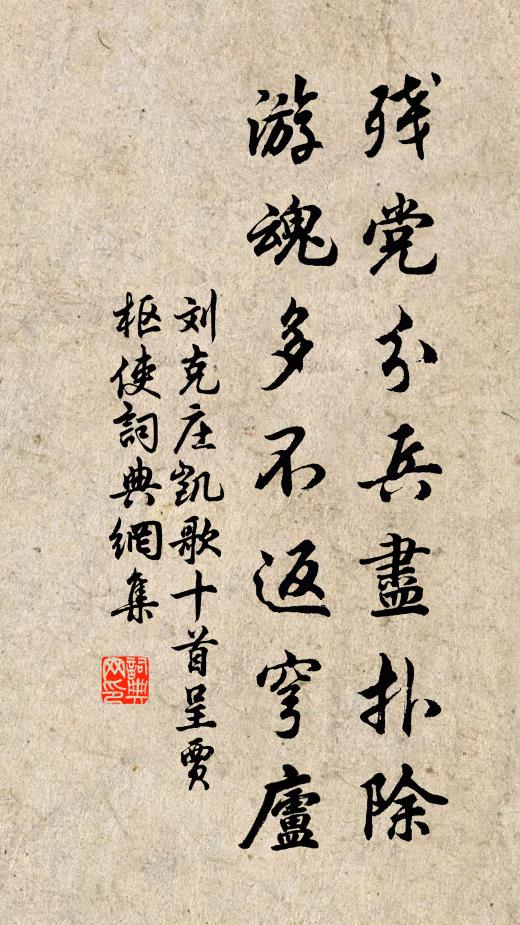 残党分兵盡扑除
游魂多不返穹廬
刘克庄凯歌十首呈贾
枢使詞典網集
詞典网印